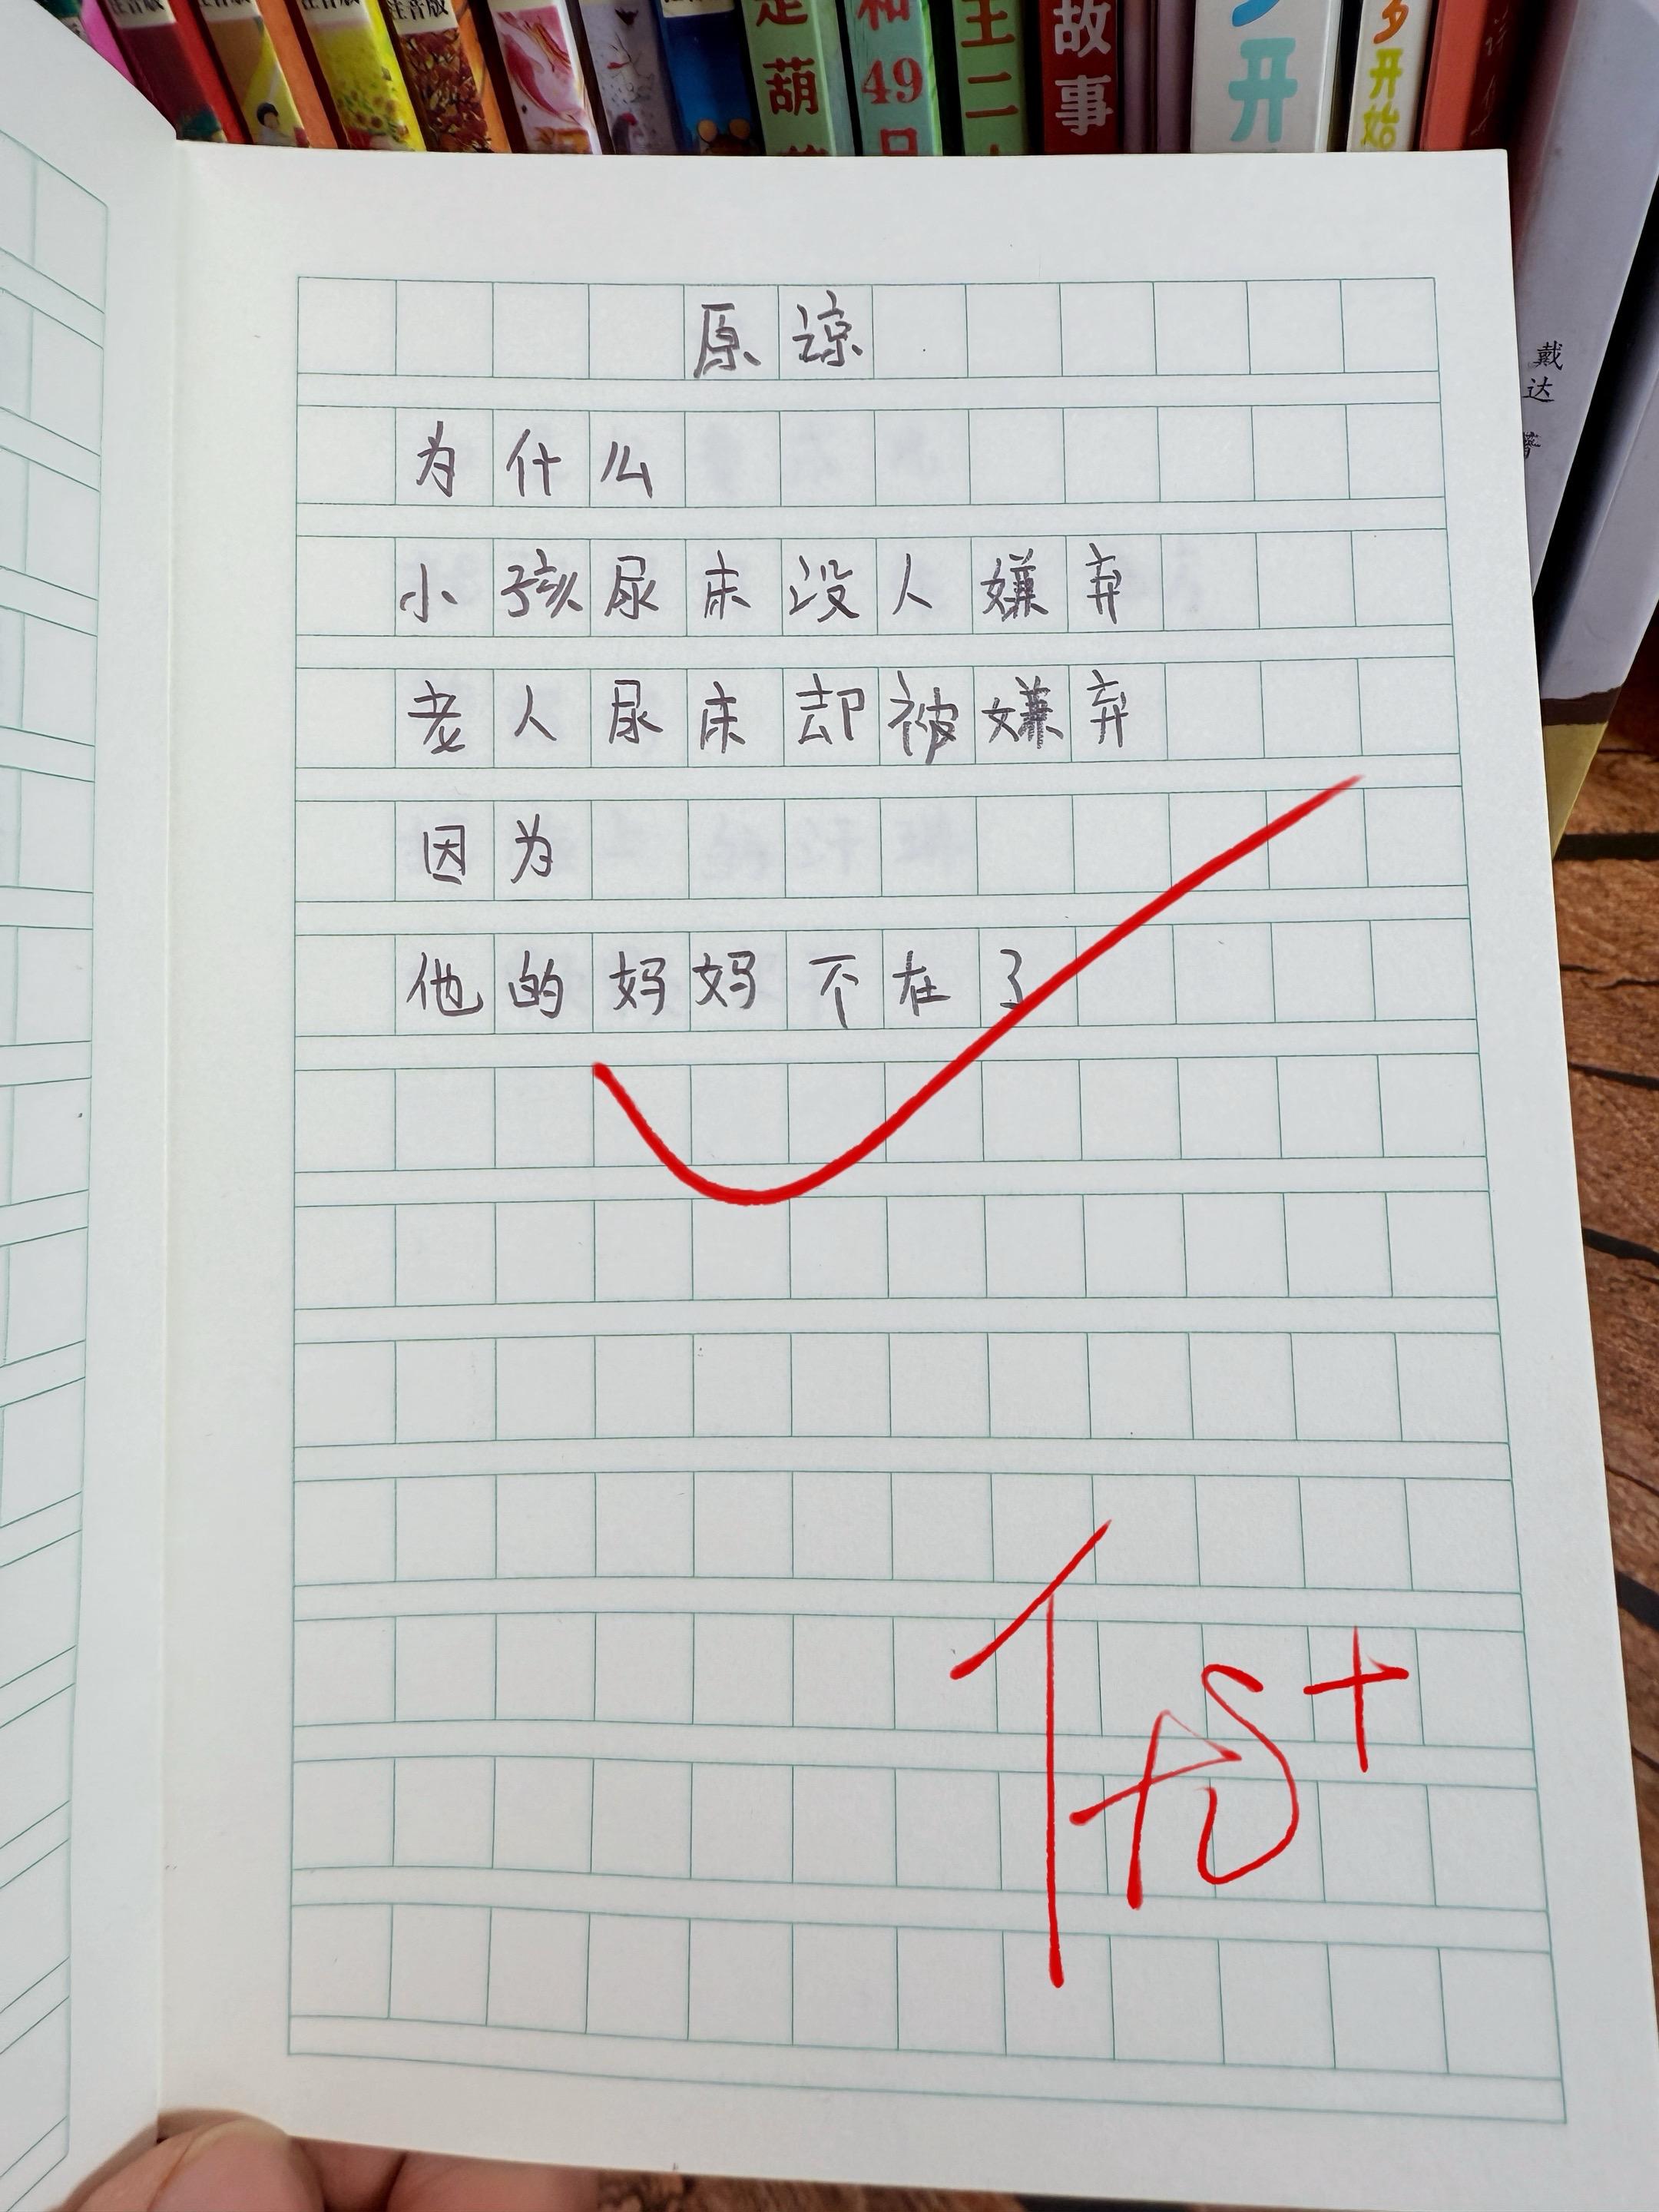 注音版
注音版
注音版
注音版
注音版
是葫
和49号
王二
故事
开
开始
戴达 著
原谅
为什么
小孩尿床没人嫌弃
老人尿床却被嫌弃
因为
他的妈妈不在了
优+